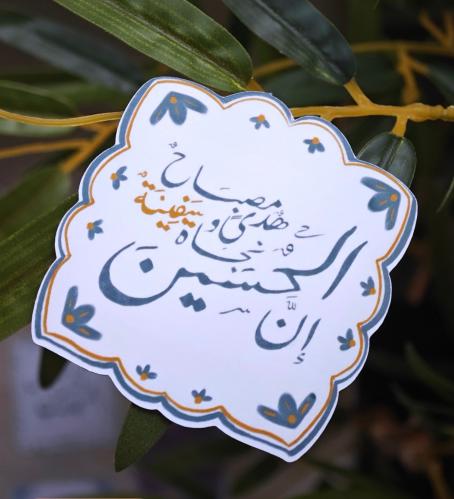 إنَّ
الحُسَين
مصبَاحُ
هُدىً و سَفينَةُ
نجَاه